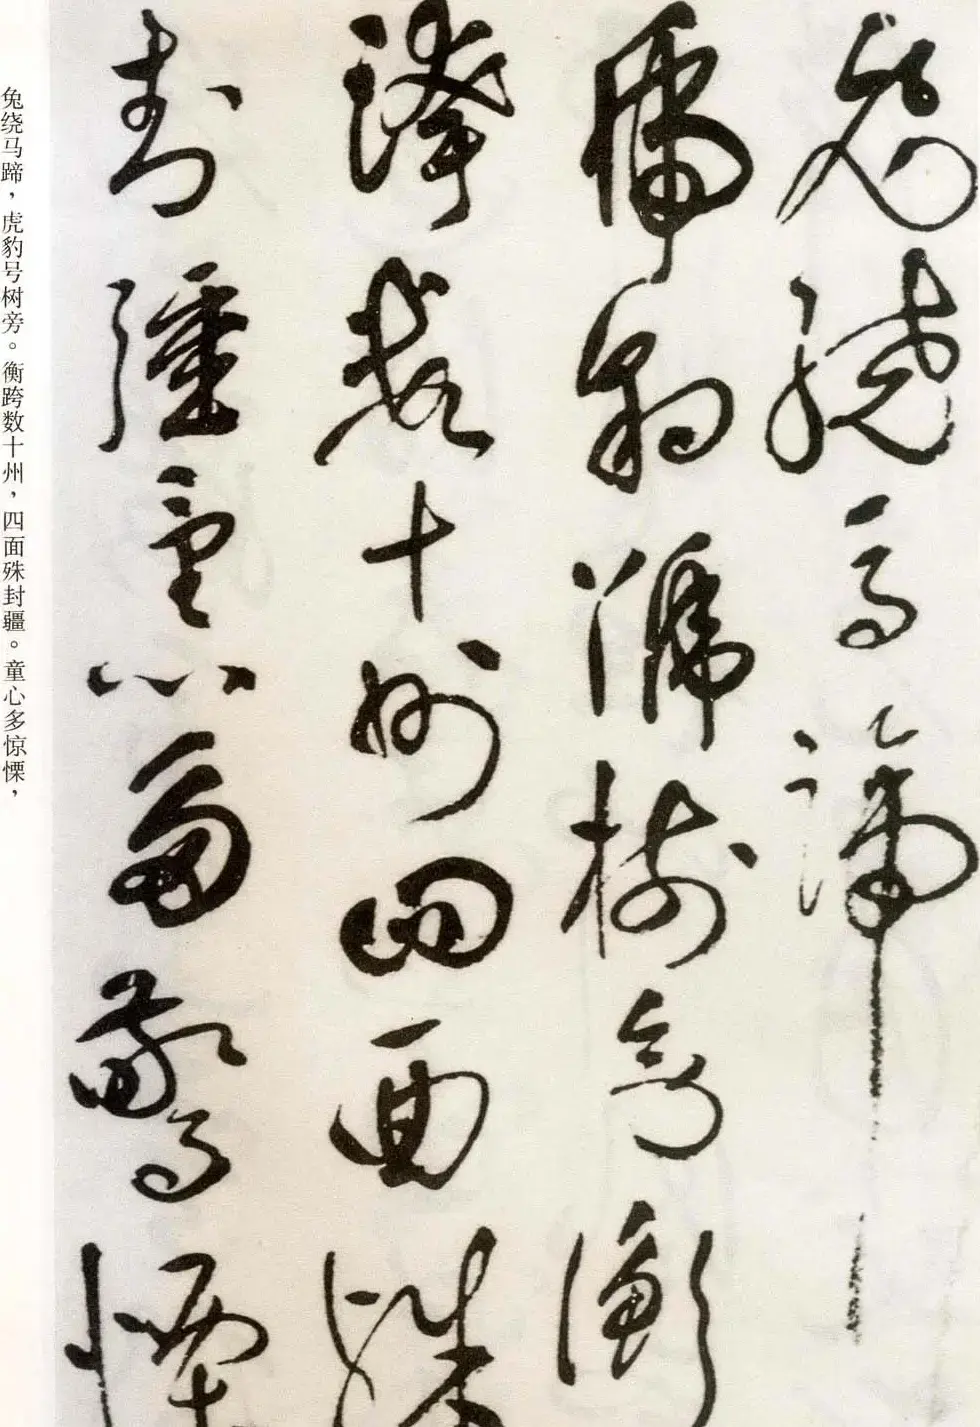 兔繞馬蹄
虎豹號樹旁衡
跨數十州四面殊
封疆童心多驚慄
兔绕马蹄，虎豹号树旁。衡跨数十州，四面殊封疆。童心多惊慄，